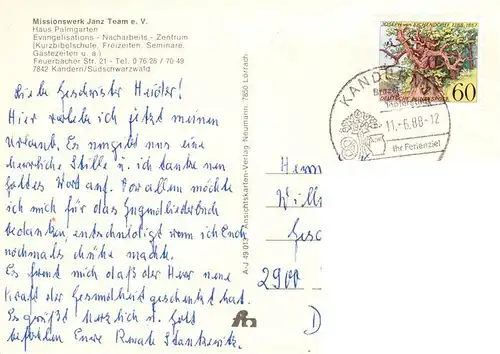 Missionswerk Janz Team e. V.
Haus Palmgarten
Evangelisations - Nacharbeits - Zentrum
(Kurzbibelschule, Freizeiten, Seminare,
Gästezeiten u. a.)
Feuerbacher Str. 21 - Tel. 0 76 26 / 70 49
7842 Kandern/Südschwarzwald
Liebe Geschwister
Hier verlebe ich jetzt meinen
Urlaub. Es umgibt uns eine
herrliche Stille u. ich tanke neu
Gottes Wort auf. Vor allem möchte
ich mich für das Jugendliederbuch
bedanken, entschuldigt wenn ich Euch
nochmals Mühe machte.
Es freut mich daß der Herr neue
Kraft der Gesundheit geschenkt hat.
Es grüßt herzlich u. Gott
befohlen Eure Renate
A-J 49 013 Ansichtskarten-Verlag Neumann, 7850 Lörrach
JOSEPH VON EICHENDORFF 1788-1857
DEUTSCHE BUNDESPOST
60
KANDERN
11.-6.88-12
Ihr Ferienziel
Herrn
Will
Gesc
2900
D